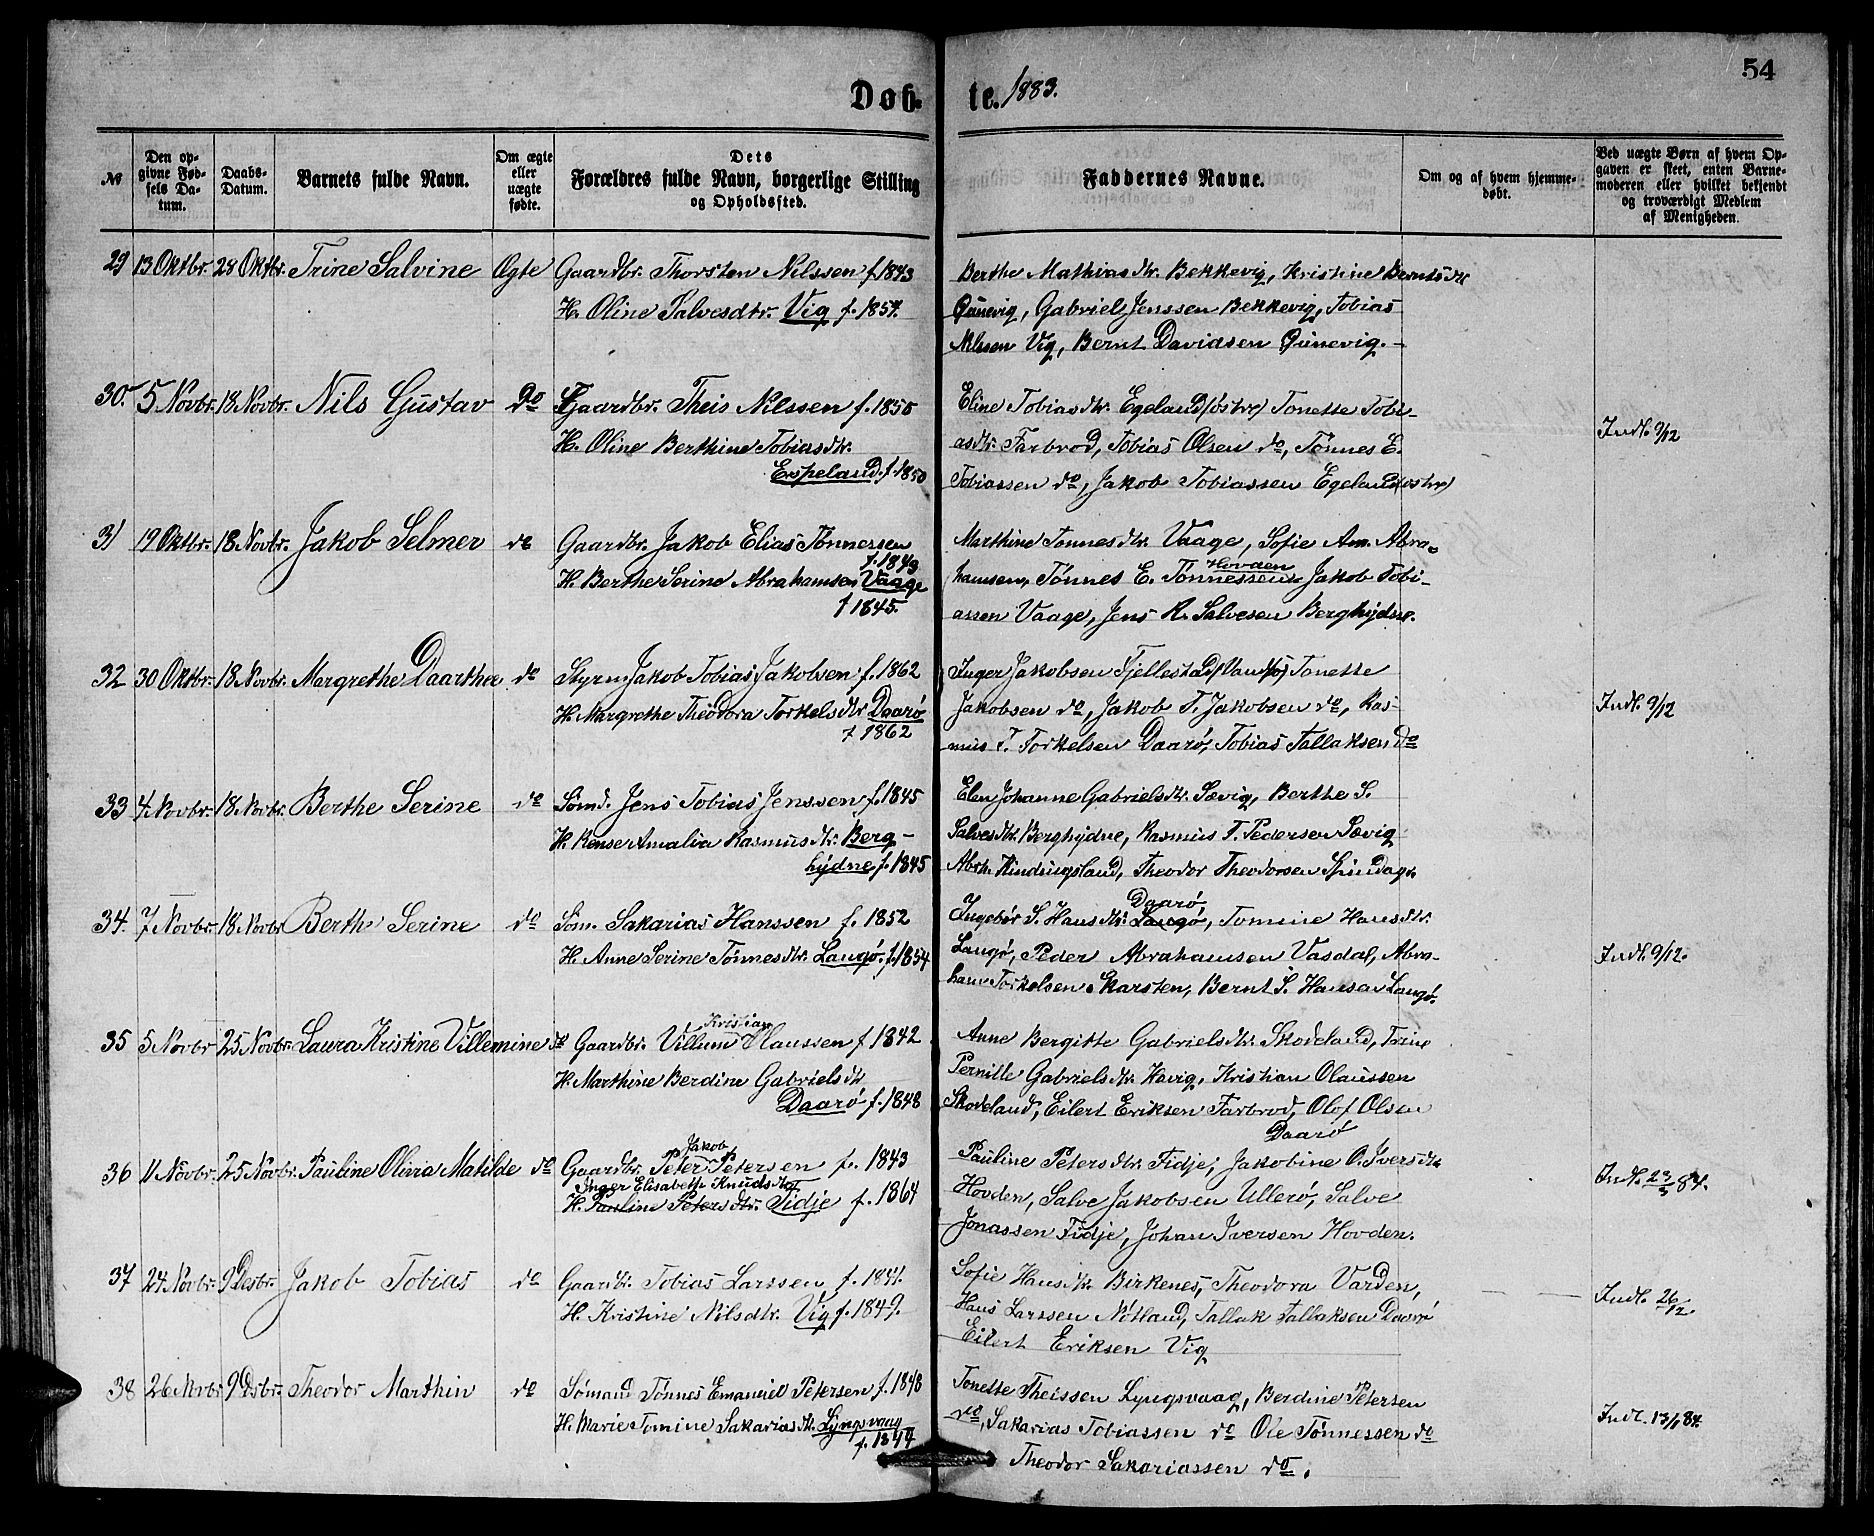 54
Døb- te. 1883.
№ Den opgivne Fødsels Datum. Daabs-Datum. Barnets fulde Navn. Om ægte eller uægte fødte. Dets Forældres fulde Navn, borgerlige Stilling og Opholdssted. Faddernes Navne. Om og af hvem hjemmedøbt. Ved uægte Børn af hvem Opgaven er skeet, enten Barnemoderen eller hvilket bekjendt og troværdigt Medlem af Menigheden.
29 13 Oktbr. 28 Oktbr. Trine Salvine Ægte Gaardbr. Thorsten Nilssen f. 1843 Berthe Mathiasdtr. Bekkevig, Kristine Berntsdtr
H. Oline Salvesdtr. Vig f. 1857. Qunevig, Gabriel Jenssen Bekkevig, Tobias
Nilssen Vig, Bernt Davidsen Qunevig. -
30. 5 Novbr. 18 Novbr. Nils Gustav Do Gaardbr. Theis Nilssen f. 1850 Eline Tobiasdtr. Egeland (østre) Tonette Tobi-
H. Oline Berthine Tobiasdtr. asdtr. Farbrod, Tobias Olsen do, Tønnes E. Indl. 9/12
Espeland. f. 1850 Tobiassen do, Jakob Tobiassen Egeland (østre)
31 19 Oktbr. 18 Novbr. Jakob Selmer do Gaardbr. Jakob Elias Tønnessen Marthine Tønnesdtr. Vaage, Sofie Am. Abra-
f. 1843 Hovden
H. Berthe Serine Abrahamsen Vaage hamsen, Tønnes E. Tønnessen Jakob Tobi-
f 1845. assen Vaage, Jens R. Salvesen Berghydne.
32 30 Oktbr. 18 Novbr. Margrethe Daarthea do Styrm. Jakob Tobias Jakobsen f. 1862 Inger Jakobsen Fjellestad (Vansø) Tonette
H. Margrethe Theodora Torkelsdtr Daarø Jakobsen do, Jakob T. Jakobsen do, Ras- Indl. 9/12
f 1862 mus T. Torkelsen Daarø, Tobias Tallaksen do
33 4 Novbr. 18 Novbr. Berthe Serine do Sømd. Jens Tobias Jenssen f. 1845 Elen Johanne Gabrielsdtr. Sævig, Berthe S.
H. Rense Amalia Rasmusdtr. Berg- Salvesdtr. Berghydne, Rasmus T. Pedersen Sævig
hydne f. 1845 Abrh. Kindingsland, Theodor Theodorsen Spindage
34. 7 Novbr 18 Novbr Berthe Serine do Søm. Sakarias Hanssen f. 1852 Ingebør S. Hansdtr. Langø, Tomine Hansdtr.
Daarø
H. Anne Serine Tønnesdtr. Langø. f. 1854 Langø, Peder Abrahamsen Vasdal, Abra- Indl. 9/12.
ham Torkelsen Skarsten, Bernt S. Hansen Langø.
35 5 Novbr 25 Novbr. Laura Kristine Villemine do Gaardbr. Villum Klaussen f 1842 Anne Bergitte Gabrielsdtr. Skoveland, Trine
Kristian
H. Marthine Berdine Gabrielsdtr Pernille Gabrielsdtr. Havig, Kristian Olaussen
Daarø f. 1848 Skoveland, Eilert Eriksen Farbrod, Olof Olsen
Daarø
36 11 Novbr. 25 Novbr. Pauline Olivia Matilde do Gaardbr. Peter Petersen f. 1843 Pauline Petersdtr. Fidje, Jakobine O. Iversdtr
Jakob
Inger Elisabeth Knudsdtr
H. Pauline Petersdtr. Fidje f. 1864 Hovden, Salve Jakobsen Ullerø, Salve Indl. 23/3 84.
Jonassen Fidje, Johan Iversen Hovden.
37 24 Novbr. 9 Desbr. Jakob Tobias do Gaardbr. Tobias Larssen f. 1841. Sofie Hansdtr. Birkenes, Theodora Varden,
H. Kristine Nilsdtr. Vig f. 1849. Hans Larssen Nøtland, Tallak Tallaksen Daarø Indl. 26/12.
Eilert Eriksen Vig
38 26 Novbr 9 Dsbr. Theodor Marthin do Sømand Tønnes Emanuel Petersen f. 1848 Tonette Theissen Lyngsvaag, Berdine Petersen
H. Marie Tomine Sakariasdtr. Lyngsvaag do, Sakarias Tobiassen do Ole Tønnessen do Indl. 13/1 84.
f. 1844 Theodor Sakariassen do.